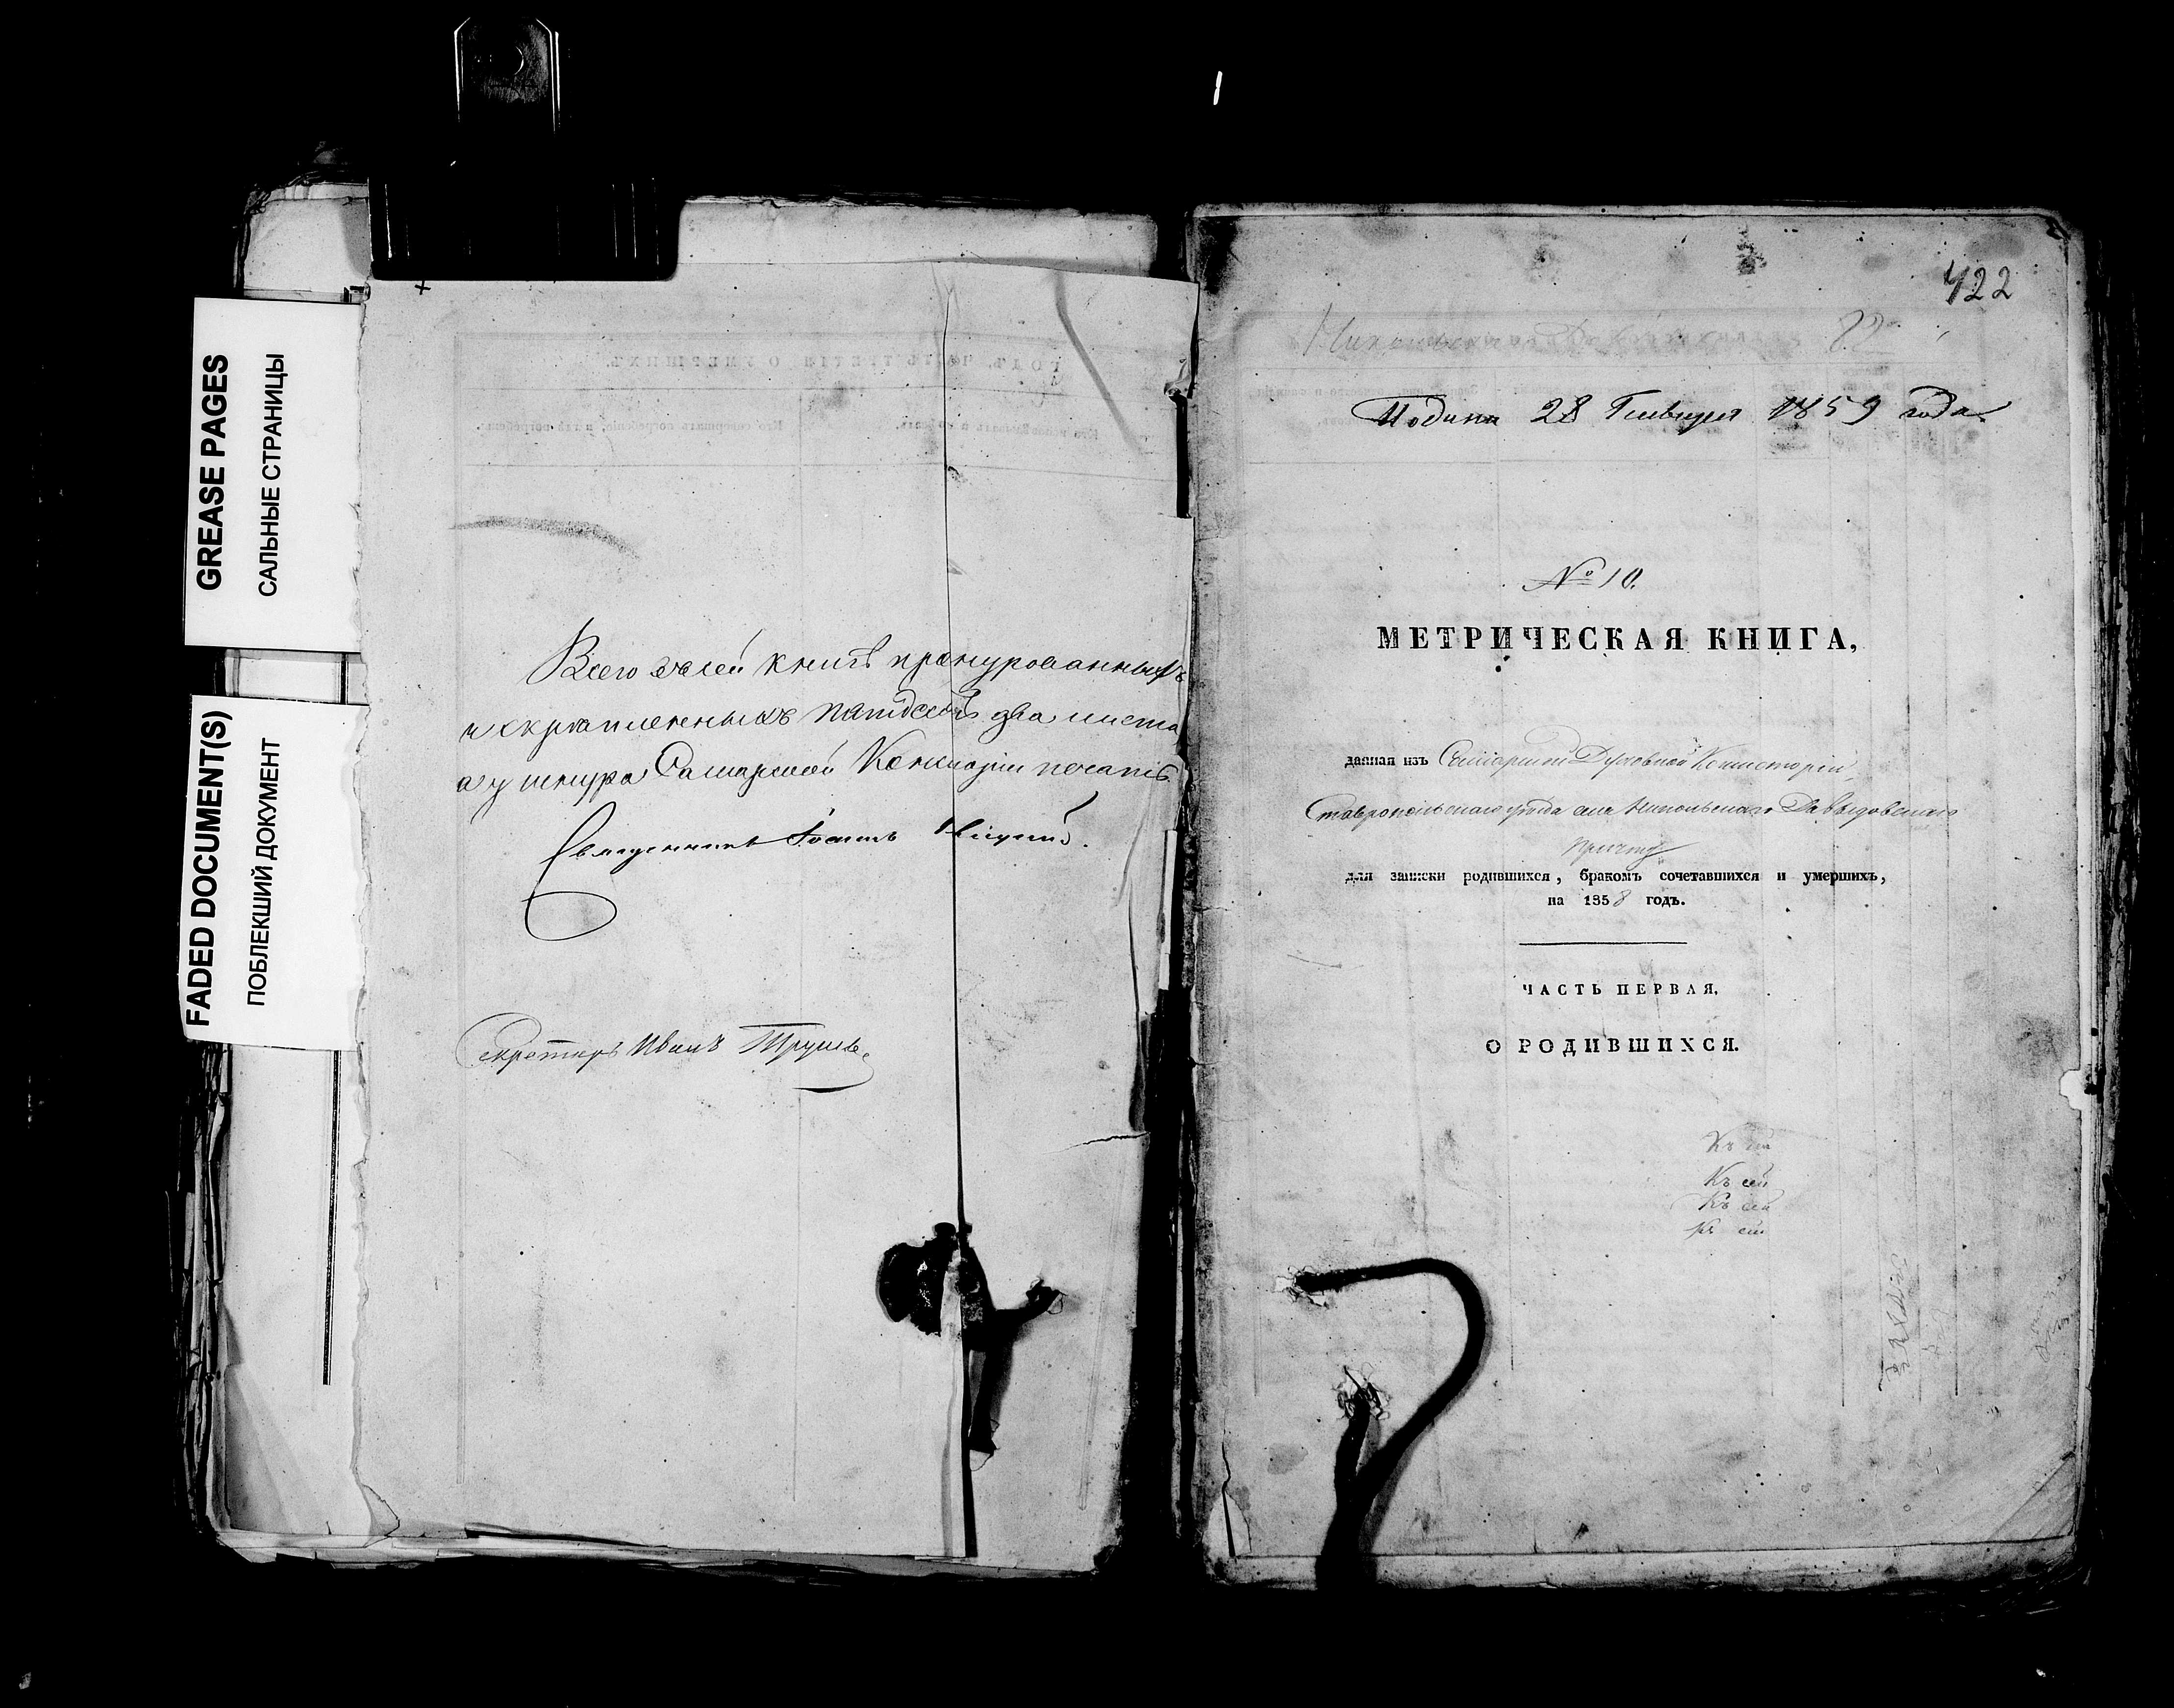 GREASE PAGES
САЛЬНЫЕ СТРАНИЦЫ
FADED DOCUMENT(S)
ПОБЛЕКШИЙ ДОКУМЕНТ
Всего въ сей книгѣ пронурованныхъ
и скрѣпленныхъ пятдесятъ два листа
а у шнура Самарской Консисторіи печать
Священникъ
Секретарь Иванъ
422
Подана 28 Генваря 1859 года
№ 10.
МЕТРИЧЕСКАЯ КНИГА,
данная изъ Самарской Духовной Консисторіи,
Ставропольскаго уѣзда села Никольскаго Давыдовскаго
Причту
для записки родившихся, бракомъ сочетавшихся и умершихъ,
на 1858 годъ.
ЧАСТЬ ПЕРВАЯ,
О РОДИВШИХСЯ.
Къ сей
Къ сей
Къ сей
Къ сей